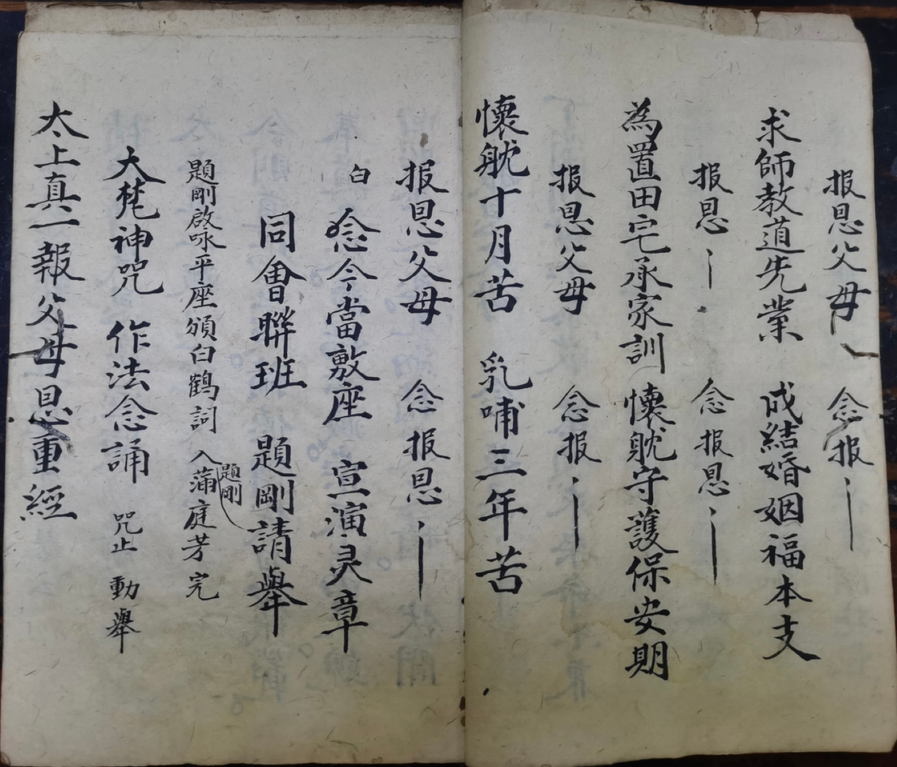 报恩父母 念报
求師教道先業 成結婚姻福本支
报恩 念报恩
為置田宅承家訓 懷躭守護保安期
报恩父母 念报
懷躭十月苦 乳哺三年苦
报恩父母 念报恩
白 念今當敷座 宣演灵章
同會聯班 題剛請舉
題剛啟咏平座頒白鶴詞 入題剛蒲庭芳完
大梵神咒 作法念誦 咒止 動舉
太上真一報父母恩重經